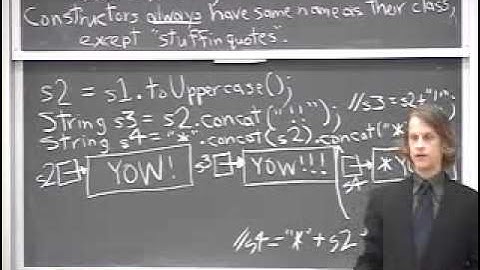 Constructors always have same name as their class,
except "stuffinquotes".
s2 = s1.toUppercase();
//s3 = s2+"!!";
String s3 = s2.concat("!!");
String s4 = "*".concat(s2).concat("*
s2 YOW! s3 YOW!!! s4 *Y
//s4="*"+s2